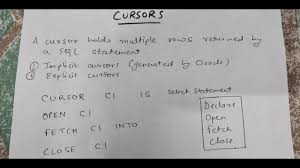 CURSORS
A cursor holds multiple rows returned by
a SQL statement
① Implicit cursors (generated by Oracle)
② Explicit cursors
CURSOR C1 IS Select Statement
OPEN C1
FETCH C1 INTO
CLOSE C1
Declare
Open
Fetch
Close